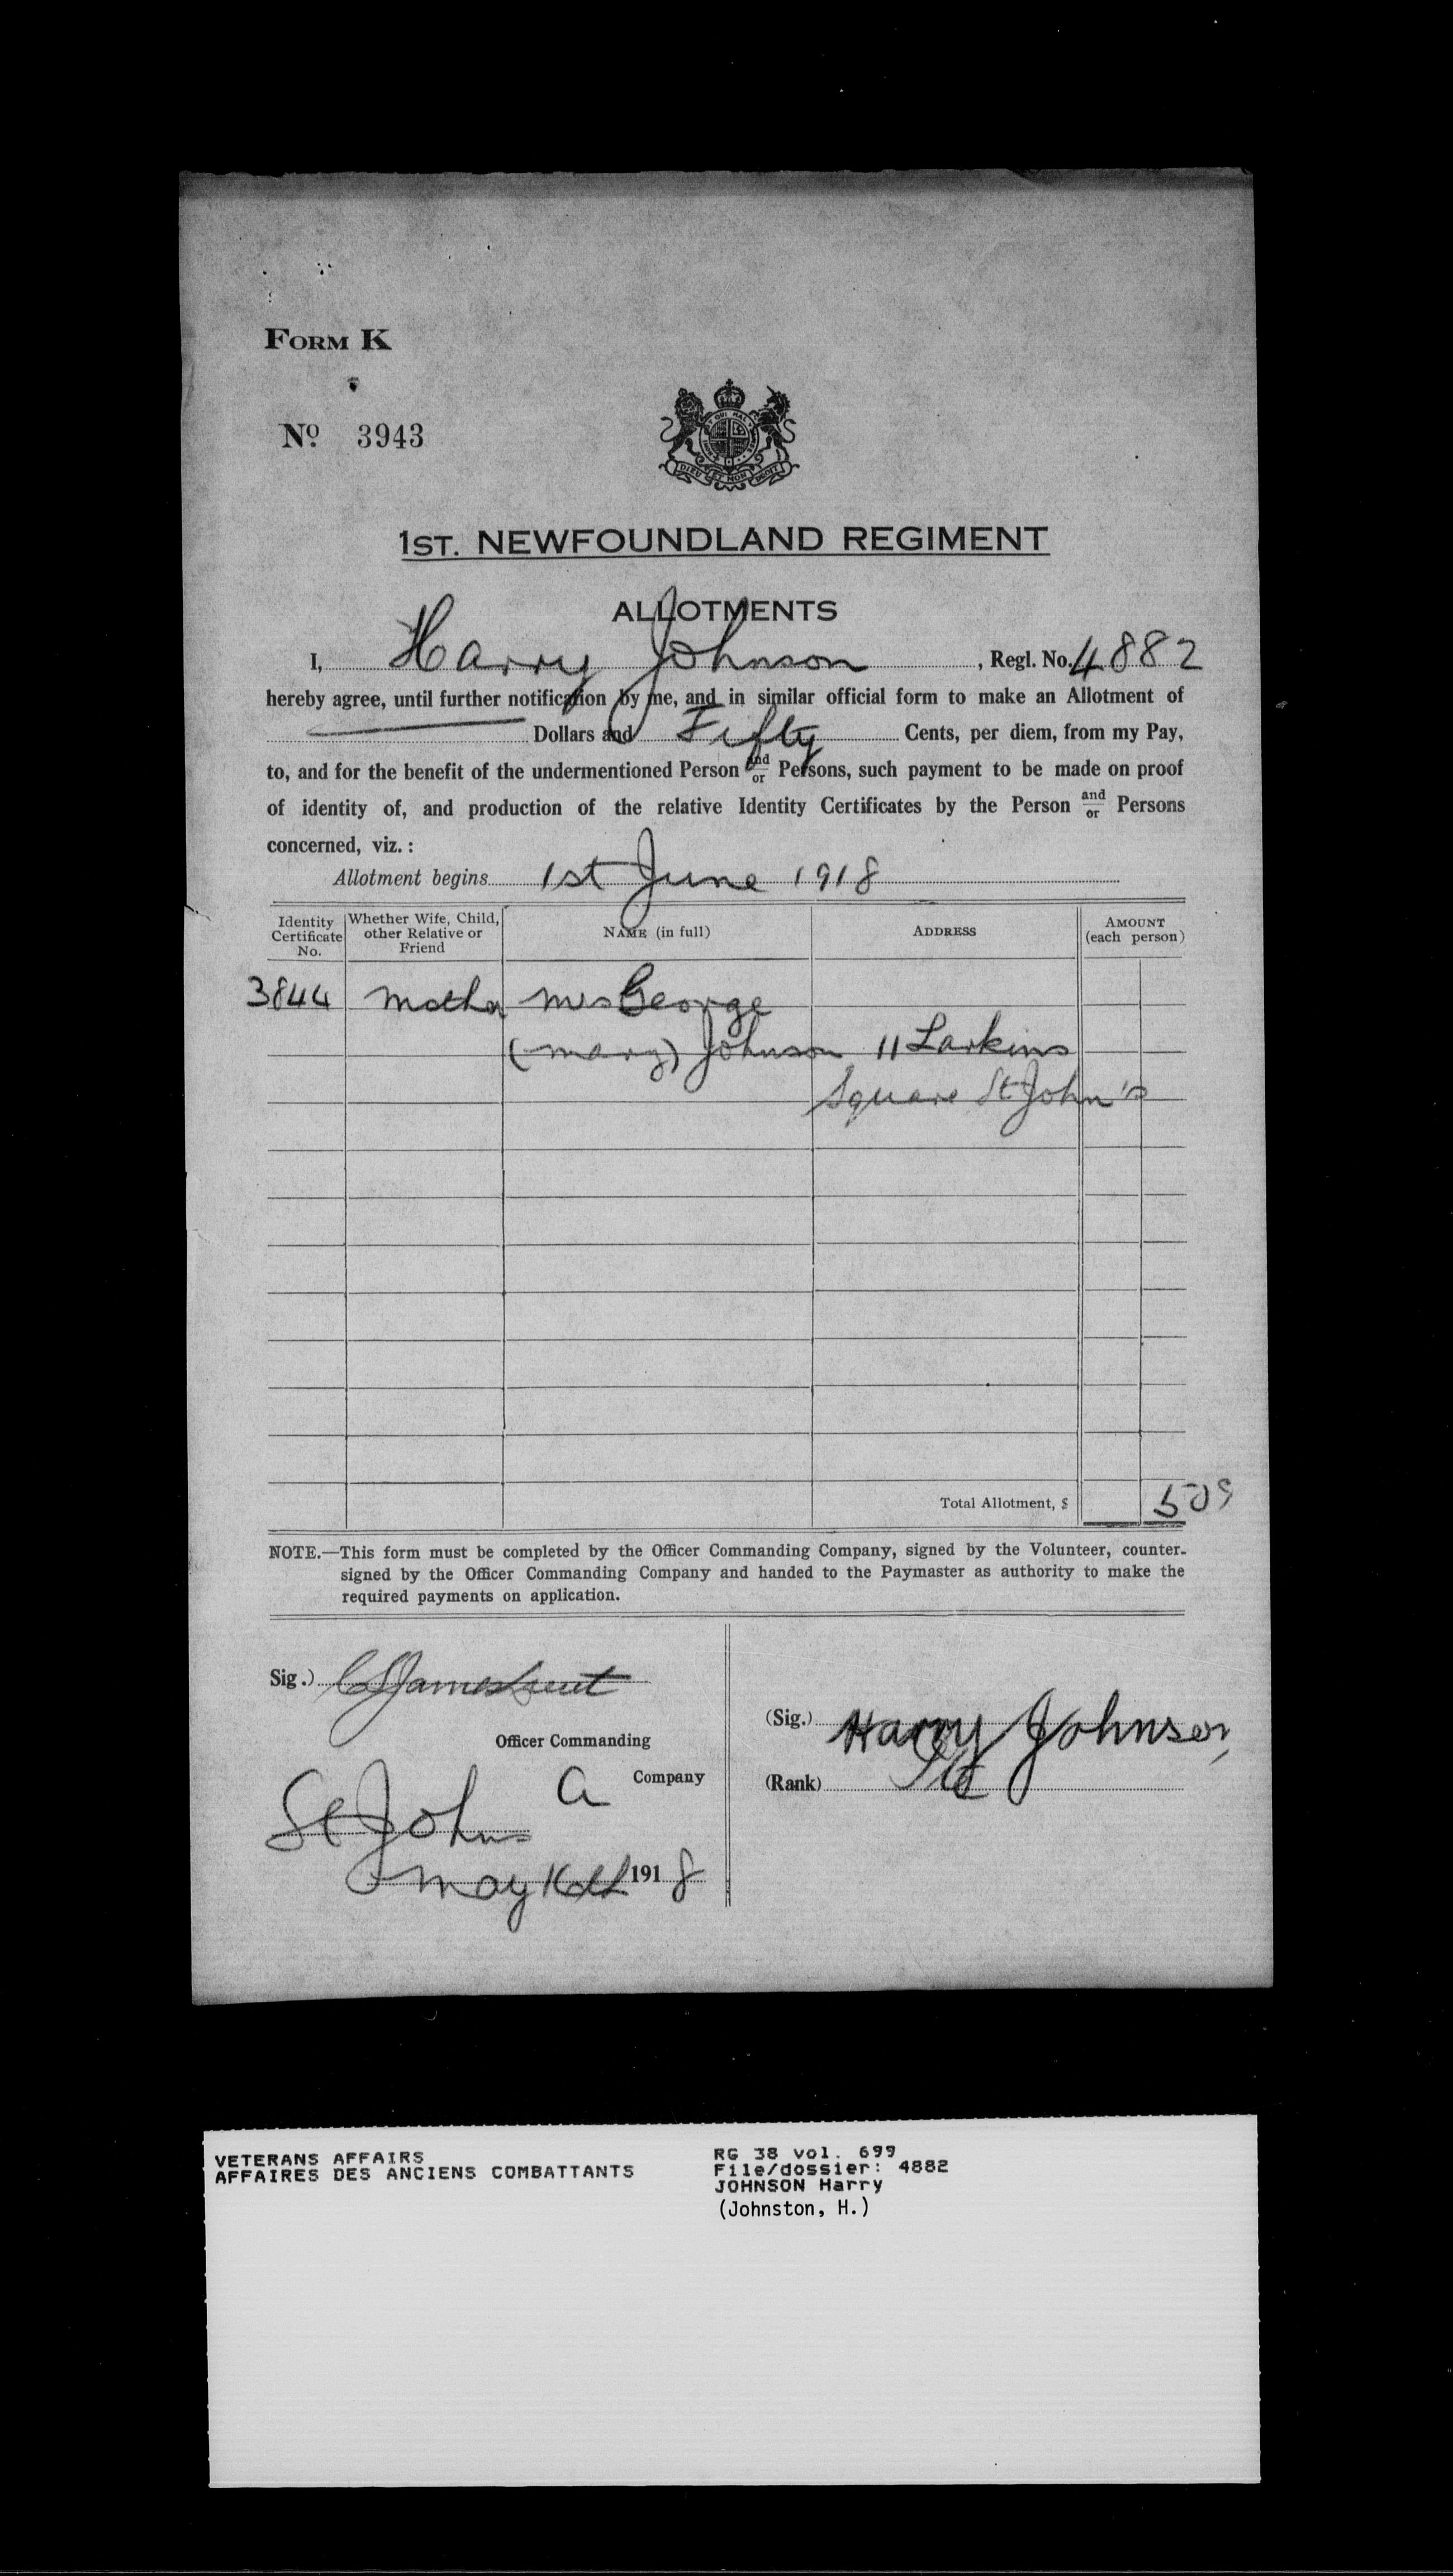 FORM K
No 3943
QUI MAL
DIEU ET MON DROIT
1ST. NEWFOUNDLAND REGIMENT
ALLOTMENTS
I, Harry Johnson, Regl. No. 4882
hereby agree, until further notification by me, and in similar official form to make an Allotment of
Dollars and Fifty Cents, per diem, from my Pay,
to, and for the benefit of the undermentioned Person and/or Persons, such payment to be made on proof
of identity of, and production of the relative Identity Certificates by the Person and/or Persons
concerned, viz. :
Allotment begins 1st June 1918
Identity Certificate No. Whether Wife, Child, other Relative or Friend NAME (in full) ADDRESS AMOUNT (each person)
3844 Mother Mrs George
(Mary) Johnson 11 Larkins
Square St John's
Total Allotment, $ 50
NOTE.—This form must be completed by the Officer Commanding Company, signed by the Volunteer, counter-
signed by the Officer Commanding Company and handed to the Paymaster as authority to make the
required payments on application.
Sig.) James Lieut
Officer Commanding
A Company
St Johns
May 16th 1918
(Sig.) Harry Johnson
(Rank) Pte
VETERANS AFFAIRS
AFFAIRES DES ANCIENS COMBATTANTS
RG 38 vol. 699
File/dossier: 4882
JOHNSON Harry
(Johnston, H.)